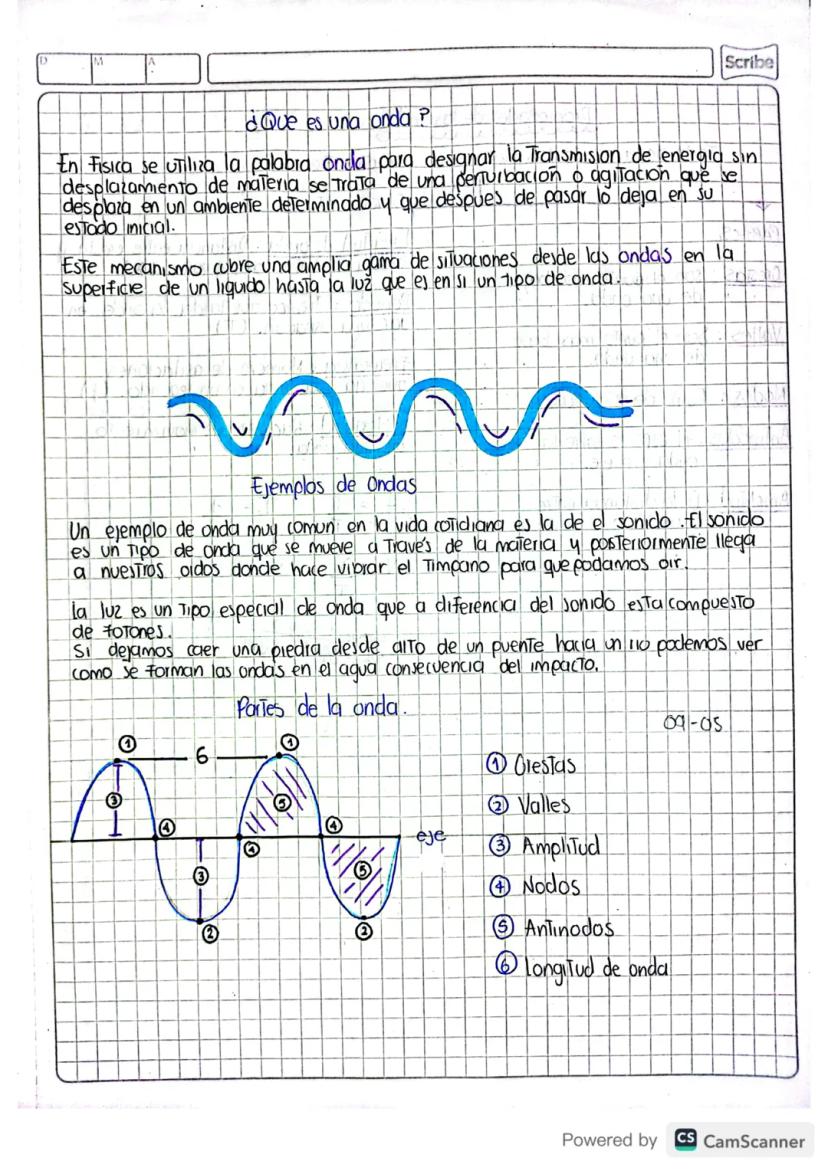 D M A
Scribe
¿Que es una onda?
En fisica se utiliza la palabra onda para designar la Transmision de energia sin
desplazamiento de materia se trata de una perturbación o agitación que se
desplaza en un ambiente determinado y que despues de pasar lo deja en su
estado inicial.
Este mecanismo cubre una amplia gama de situaciones desde las ondas en la
superficie de un liquido hasta la luz que es en si un tipo de onda.
Ejemplos de Ondas
Un ejemplo de onda muy comun en la vida cotidiana es la de el sonido. El sonido
es un tipo de onda que se mueve a través de la materia y posteriormente llega
a nuestros oidos donde hace vibrar el timpano para que podamos oir.
la luz es un tipo especial de onda que a diferencia del sonido esta compuesto
de fotones.
Si dejamos caer una piedra desde alto de un puente hacia un rio podemos ver
como se forman las ondas en el agua consecuencia del impacto.
Partes de la onda.
09-05
1 6 1
3 5
4 4
4
eje
3 5
2 2
1 Crestas
2 Valles
3 Amplitud
4 Nodos
5 Antinodos
6 longitud de onda
Powered by CS CamScanner